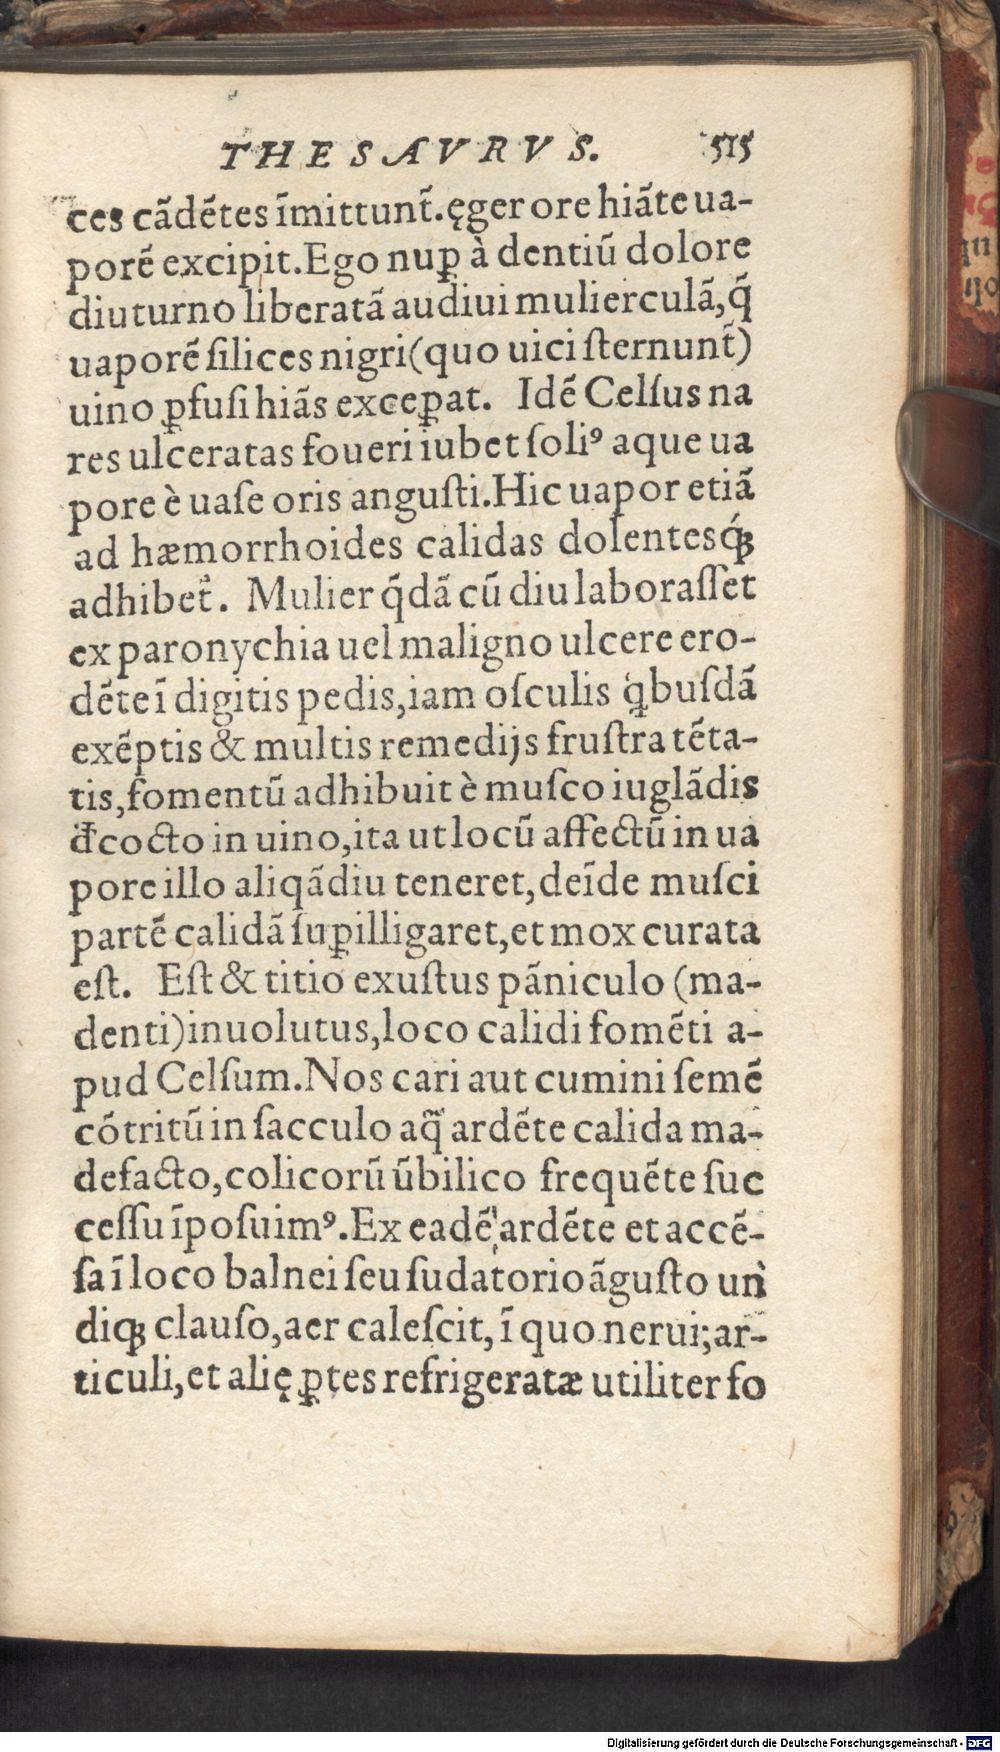 THESAVRVS. 515
ces cãdẽtes ĩmittunt̃.ęger ore hiãte ua-
porẽ excipit.Ego nuꝑ à dentiũ dolore
diuturno liberatã audiui mulierculã,q̃
uaporẽ ſilices nigri(quo uici ſternunt̃)
uino ꝑfuſi hiãs exceꝑat. Idẽ Celſus na
res ulceratas foueri iubet ſoliꝰ aque ua
pore è uaſe oris anguſti.Hic uapor etiã
ad hæmorrhoides calidas dolentesq́ꝫ
adhibet̃. Mulier q̃dã cũ diu laboraſſet
ex paronychia uel maligno ulcere ero-
dẽte ĩ digitis pedis,iam oſculis ꝗbuſdã
exẽptis & multis remedijs fruſtra tẽta-
tis,fomentũ adhibuit è muſco iuglãdis
đcocto in uino,ita ut locũ affectũ in ua
pore illo aliqãdiu teneret,deĩde muſci
partẽ calidã ſuꝑilligaret,et mox curata
eſt. Eſt & titio exuſtus pãniculo (ma-
denti)inuolutus,loco calidi fomẽti a-
pud Celſum.Nos cari aut cumini ſemẽ
cõtritũ in ſacculo aq̃ ardẽte calida ma-
defacto,colicorũ ũbilico frequẽte ſuc
ceſſu ĩpoſuimꝰ.Ex eadẽ ardẽte et accẽ-
ſa ĩ loco balnei ſeu ſudatorio ãguſto un
diqꝫ clauſo,aer caleſcit,ĩ quo nerui,ar-
ticuli,et alię ꝑtes refrigeratæ utiliter fo
Digitalisierung gefördert durch die Deutsche Forschungsgemeinschaft - DFG